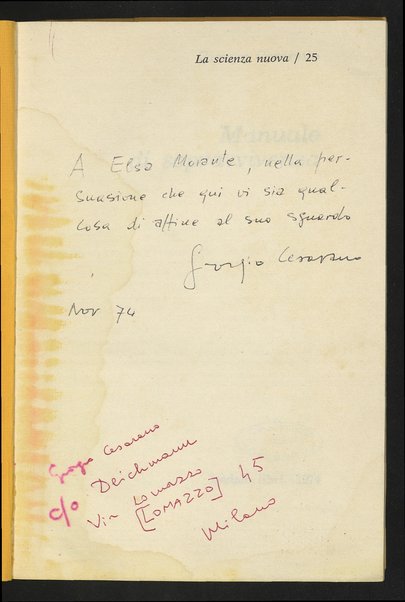 La scienza nuova / 25
A Elsa Morante, nella per-
suasione che qui vi sia qual-
cosa di affine al suo sguardo
Giorgio Cesarano
Nov 74
Giorgio Cesarano
c/o Deichmann
Via Lomazzo
[LOMAZZO] 45
Milano